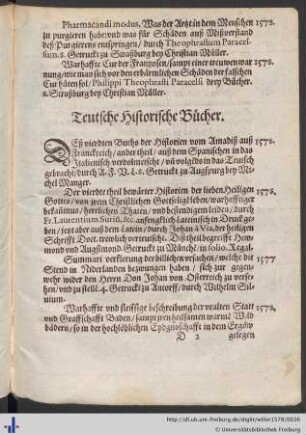 Pharmacandi modus, Was der Artzt in dem Menschen 1578.
zu purgieren habe: vnd was für Schäden auß Mißverstand
deß Purgierens entspringen / durch Theophrastum Paracel-
sum. 8. Getruckt zu Straßburg bey Christian Müller.
Warhaffte Cur der Frantzosen / sampt einer trewen war 1578.
nung / wie man sich vor den erdärmlichen Schäden der falschen
Cur hüten sol / Philippi Theophrasti Paracelsi drey Bücher.
8. Straßburg bey Christian Müller.
Teutsche Historische Bücher.
DEß vierdten Buchs der Historien vom Amadiß auß 1578.
Franckreich / ander theil / auß dem Spanischen in das
Italienisch verdolmetscht / vñ volgēds in das Teutsch
gebracht / durch A. F. V. L. 8. Getruckt zu Augspurg bey Mi-
chel Manger.
Der vierdte theil bewärter Historien der lieben Heiligen 1578.
Gottes / von jrem Christlichen Gottselige leben / warhafftiger
bekantnus / herrlichen Thaten / vnd bestendigem leiden / durch
Fr. Laurentium Surió, &c. anfengklich Lateinisch in Druck ge-
ben / jetz aber auß dem Latein / durch Johan à Via, der heiligen
Schrifft Doct. trewlich vertentscht. Diß theil begreifft Hew-
mond vnd Augstmond. Getruckt zu Münchē / in folio. Regal.
Summari verklerung der billichen vrsachen / welche die 1577
Stend in Niderlanden bezwungen haben / sich zur gegen-
wehr wider den Herrn Don Johan von Osterreich zu verse-
hen / vnd zu stellē. 4. Getruckt zu Antorff / durch Wilhelm Sil-
uium.
Warhaffte vnd fleissige beschreibung der vralten Statt 1578.
vnd Graffschafft Baden / sampt jren heilsamen warmē Wild-
bädern / so in der hochlöblichen Eydgnoschafft in dem Ergöw
D 2 gelegen
http://dl.ub.uni-freiburg.de/diglit/willer1578/0036
© Universitätsbibliothek Freiburg